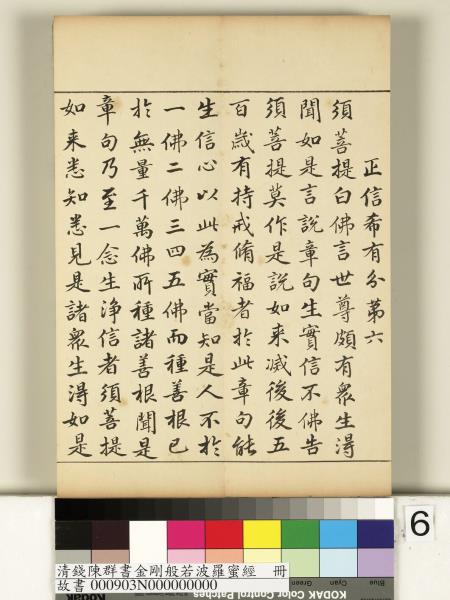 正信希有分第六
須菩提白佛言世尊頗有衆生淂
聞如是言說章句生實信不佛告
須菩提莫作是說如来滅後後五
百歲有持戒脩福者於此章句能
生信心以此為實當知是人不於
一佛二佛三四五佛而種善根已
於無量千萬佛所種諸善根聞是
章句乃至一念生淨信者須菩提
如来悉知悉見是諸衆生淂如是
6
清錢陳群書金剛般若波羅蜜經 冊
故書 000903N000000000
Green
Cyan
Blue
KODAK Color Control Patches